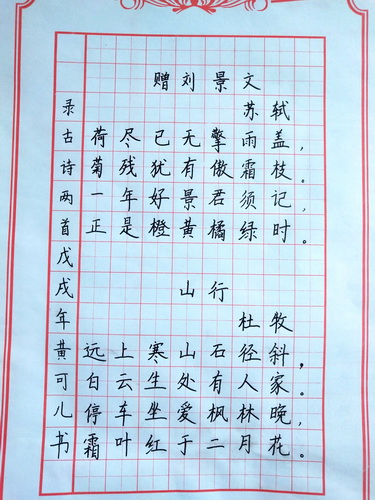 赠刘景文
苏轼
荷尽已无擎雨盖，
菊残犹有傲霜枝。
一年好景君须记，
正是橙黄橘绿时。
山行
杜牧
远上寒山石径斜，
白云生处有人家。
停车坐爱枫林晚，
霜叶红于二月花。
录古诗两首戊戌年黄可儿书